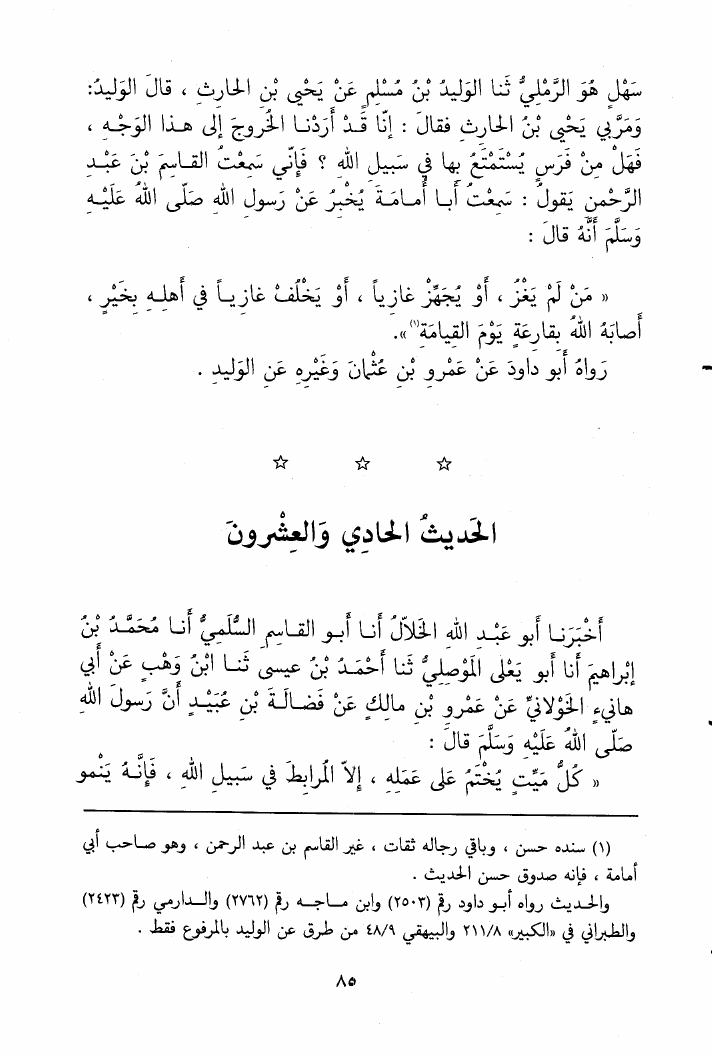 سَهْلٍ هُوَ الرَّمْلِيُّ ثَنا الوَلِيدُ بْنُ مُسْلِمٍ عَنْ يَحْيى بْنِ الحارِثِ ، قالَ الوَلِيدُ:
وَمَرَّبي يَحْيى بْنُ الحارِثِ فقالَ : إنّا قَدْ أرَدْنا الخُروجَ إلى هذا الوَجْهِ ،
فَهَلْ مِنْ فَرَسٍ يُسْتَمْتَعُ بها في سَبيلِ اللهِ ؟ فَإنّي سَمِعْتُ القاسِمَ بْنَ عَبْدِ
الرَّحْمنِ يَقولُ : سَمِعْتُ أبا أُمامَةَ يُخْبِرُ عَنْ رَسولِ اللهِ صَلّى اللهُ عَلَيْهِ
وَسَلَّمَ أنَّهُ قالَ :
« مَنْ لَمْ يَغْزُ ، أوْ يُجَهِّزْ غازِياً ، أوْ يَخْلُفْ غازِياً في أهلِهِ بِخَيْرٍ ،
أصابَهُ اللهُ بِقارِعَةٍ يَوْمَ القِيامَةِ(١)».
رَواهُ أبو داودَ عَنْ عَمْرِو بْنِ عُثْمانَ وَغَيْرِهِ عَنِ الوَليدِ .
☆ ☆ ☆
الحَديثُ الحادِي وَالعِشْرونَ
أخْبَرَنا أبو عَبْدِ اللهِ الخَلاّلُ أنا أبو القاسِمِ السُّلَمِيُّ أنا مُحَمَّدُ بْنُ
إبْراهيمَ أنا أبو يَعْلى المَوْصِلِيُّ ثَنا أحْمَدُ بْنُ عيسى ثَنا ابْنُ وَهْبٍ عَنْ أبي
هانِيءٍ الخَوْلانِيِّ عَنْ عَمْرِو بْنِ مالِكٍ عَنْ فَضالَةَ بْنِ عُبَيْدٍ أنَّ رَسولَ اللهِ
صَلّى اللهُ عَلَيْهِ وَسَلَّمَ قالَ :
« كُلُّ مَيِّتٍ يُخْتَمُ عَلى عَمَلِهِ ، إلاّ المُرابِطَ في سَبيلِ اللهِ ، فَإنَّهُ يَنْمو
(١) سنده حسن ، وباقي رجاله ثقات ، غير القاسم بن عبد الرحمن ، وهو صاحب أبي
أمامة ، فإنه صدوق حسن الحديث .
والحديث رواه أبو داود رقم (٢٥٠٣) وابن ماجه رقم (٢٧٦٢) والدارمي رقم (٢٤٢٣)
والطبراني في «الكبير» ٢١١/٨ والبيهقي ٤٨/٩ من طرق عن الوليد بالمرفوع فقط .
٨٥